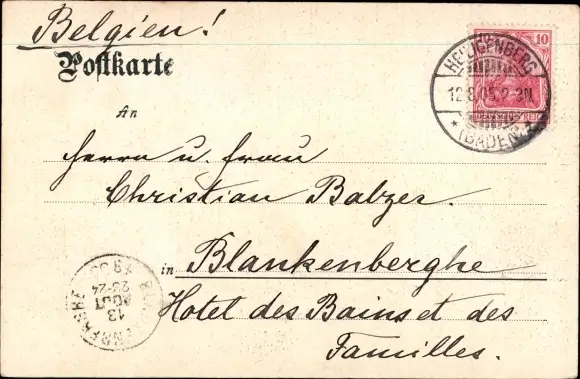 Belgien!
Postkarte
An
Herrn u. Frau
Christian Balzer.
in Blankenberghe
Hotel des Bains et des
Familles.
10
DEUTSCHES REICH
HEILIGENBERG
12.8.05.2-3N.
* (BADEN) *
BLANKENBERGHE
13
AOUT
23-24